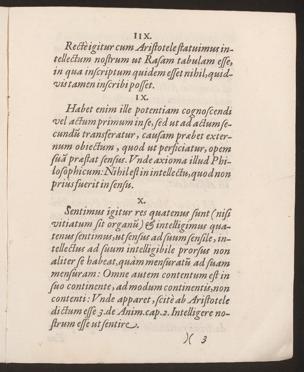 IIX.
Rectè igitur cum Aristotele statuimus in-
tellectum nostrum ut Rasam tabulam esse,
in qua inscriptum quidem esset nihil, quid-
vis tamen inscribi posset.
IX.
Habet enim ille potentiam cognoscendi
vel actum primum in se, sed ut ad actum se-
cundũ transferatur, causam præbet exter-
num obiectum, quod ut perficiatur, opem
suã præstat sensus. Vnde axioma illud Phi-
losophicum: Nihil est in intellectu, quod non
prius fuerit in sensu.
X.
Sentimus igitur res quatenus sunt (nisi
vitiatum sit organũ) & intelligimus qua-
tenus sentimus, ut sensus ad suum sensile, in-
tellectus ad suum intelligibile prorsus non
aliter se habeat, quàm mensuratũ ad suam
mensuram: Omne autem contentum est in
suo continente, ad modum continentis, non
contenti: Vnde apparet, scitè ab Aristotele
dictum esse 3. de Anim. cap. 2. Intelligere no-
strum esse ut sentire.
)( 3